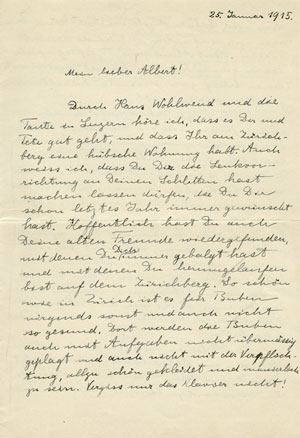 25. Januar 1915.
Mein lieber Albert!
Durch Hans Wohlwend und die
Tante in Luzern höre ich, dass es Dir und
Tete gut geht, und dass Ihr am Zürich-
berg eine hübsche Wohnung habt. Auch
weiss ich, dass Du Dir die Lenkvor-
richtung an Deinen Schlitten hast
machen lassen dürfen, die Du Dir
schon letztes Jahr immer gewünscht
hast. Hoffentlich hast Du auch
Deine alten Freunde wiedergefunden,
mit denen Du Dich immer gebalgt hast
und mit denen Du herumgelaufen
bist auf dem Zürichberg. So schön
wie in Zürich ist es für Buben
nirgends sonst und auch nicht
so gesund. Dort werden die Buben
auch mit Aufgaben nicht übermässig
geplagt und auch nicht mit der Verpflich-
tung, allzu schön gekleidet und manierlich
zu sein. Vergiss nur das Klavier nicht!